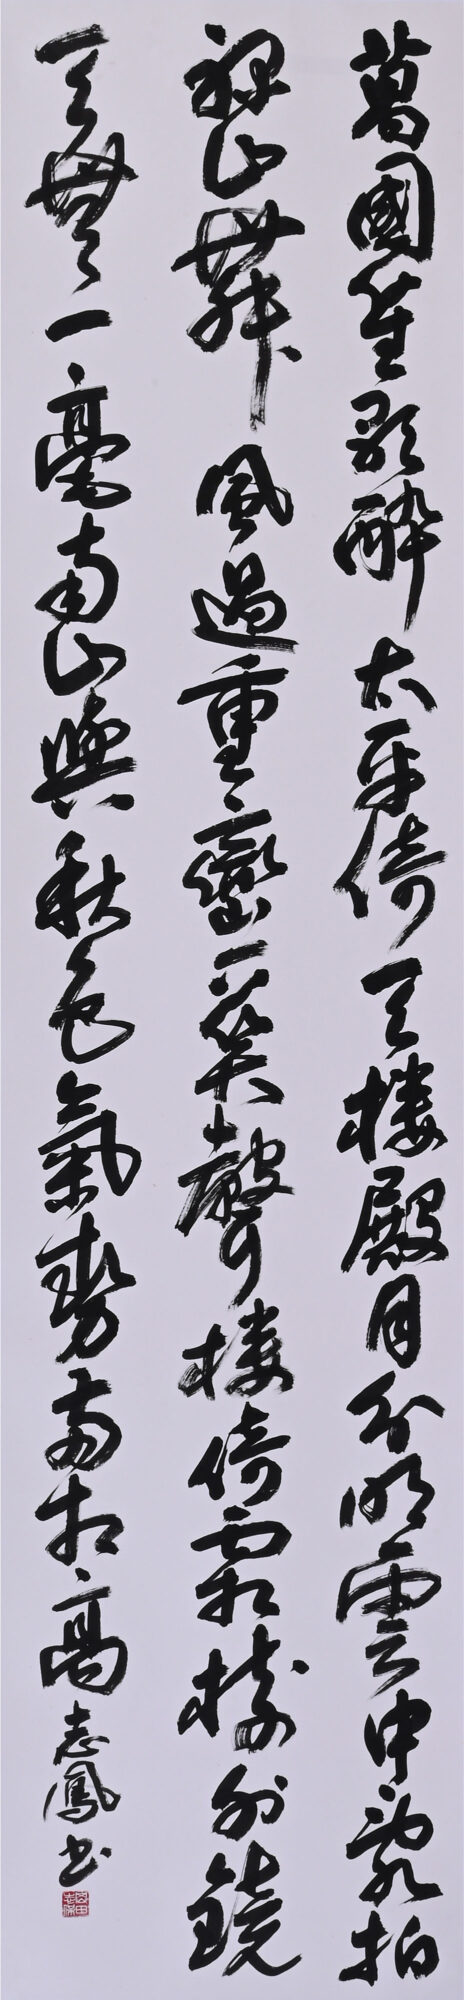 萬國笙歌醉太平倚天樓殿月分明雲中亂拍
祿山舞風過重巒下笑聲樓倚霜樹外鏡
天無一毫南山與秋色氣勢兩相高
志鳳書